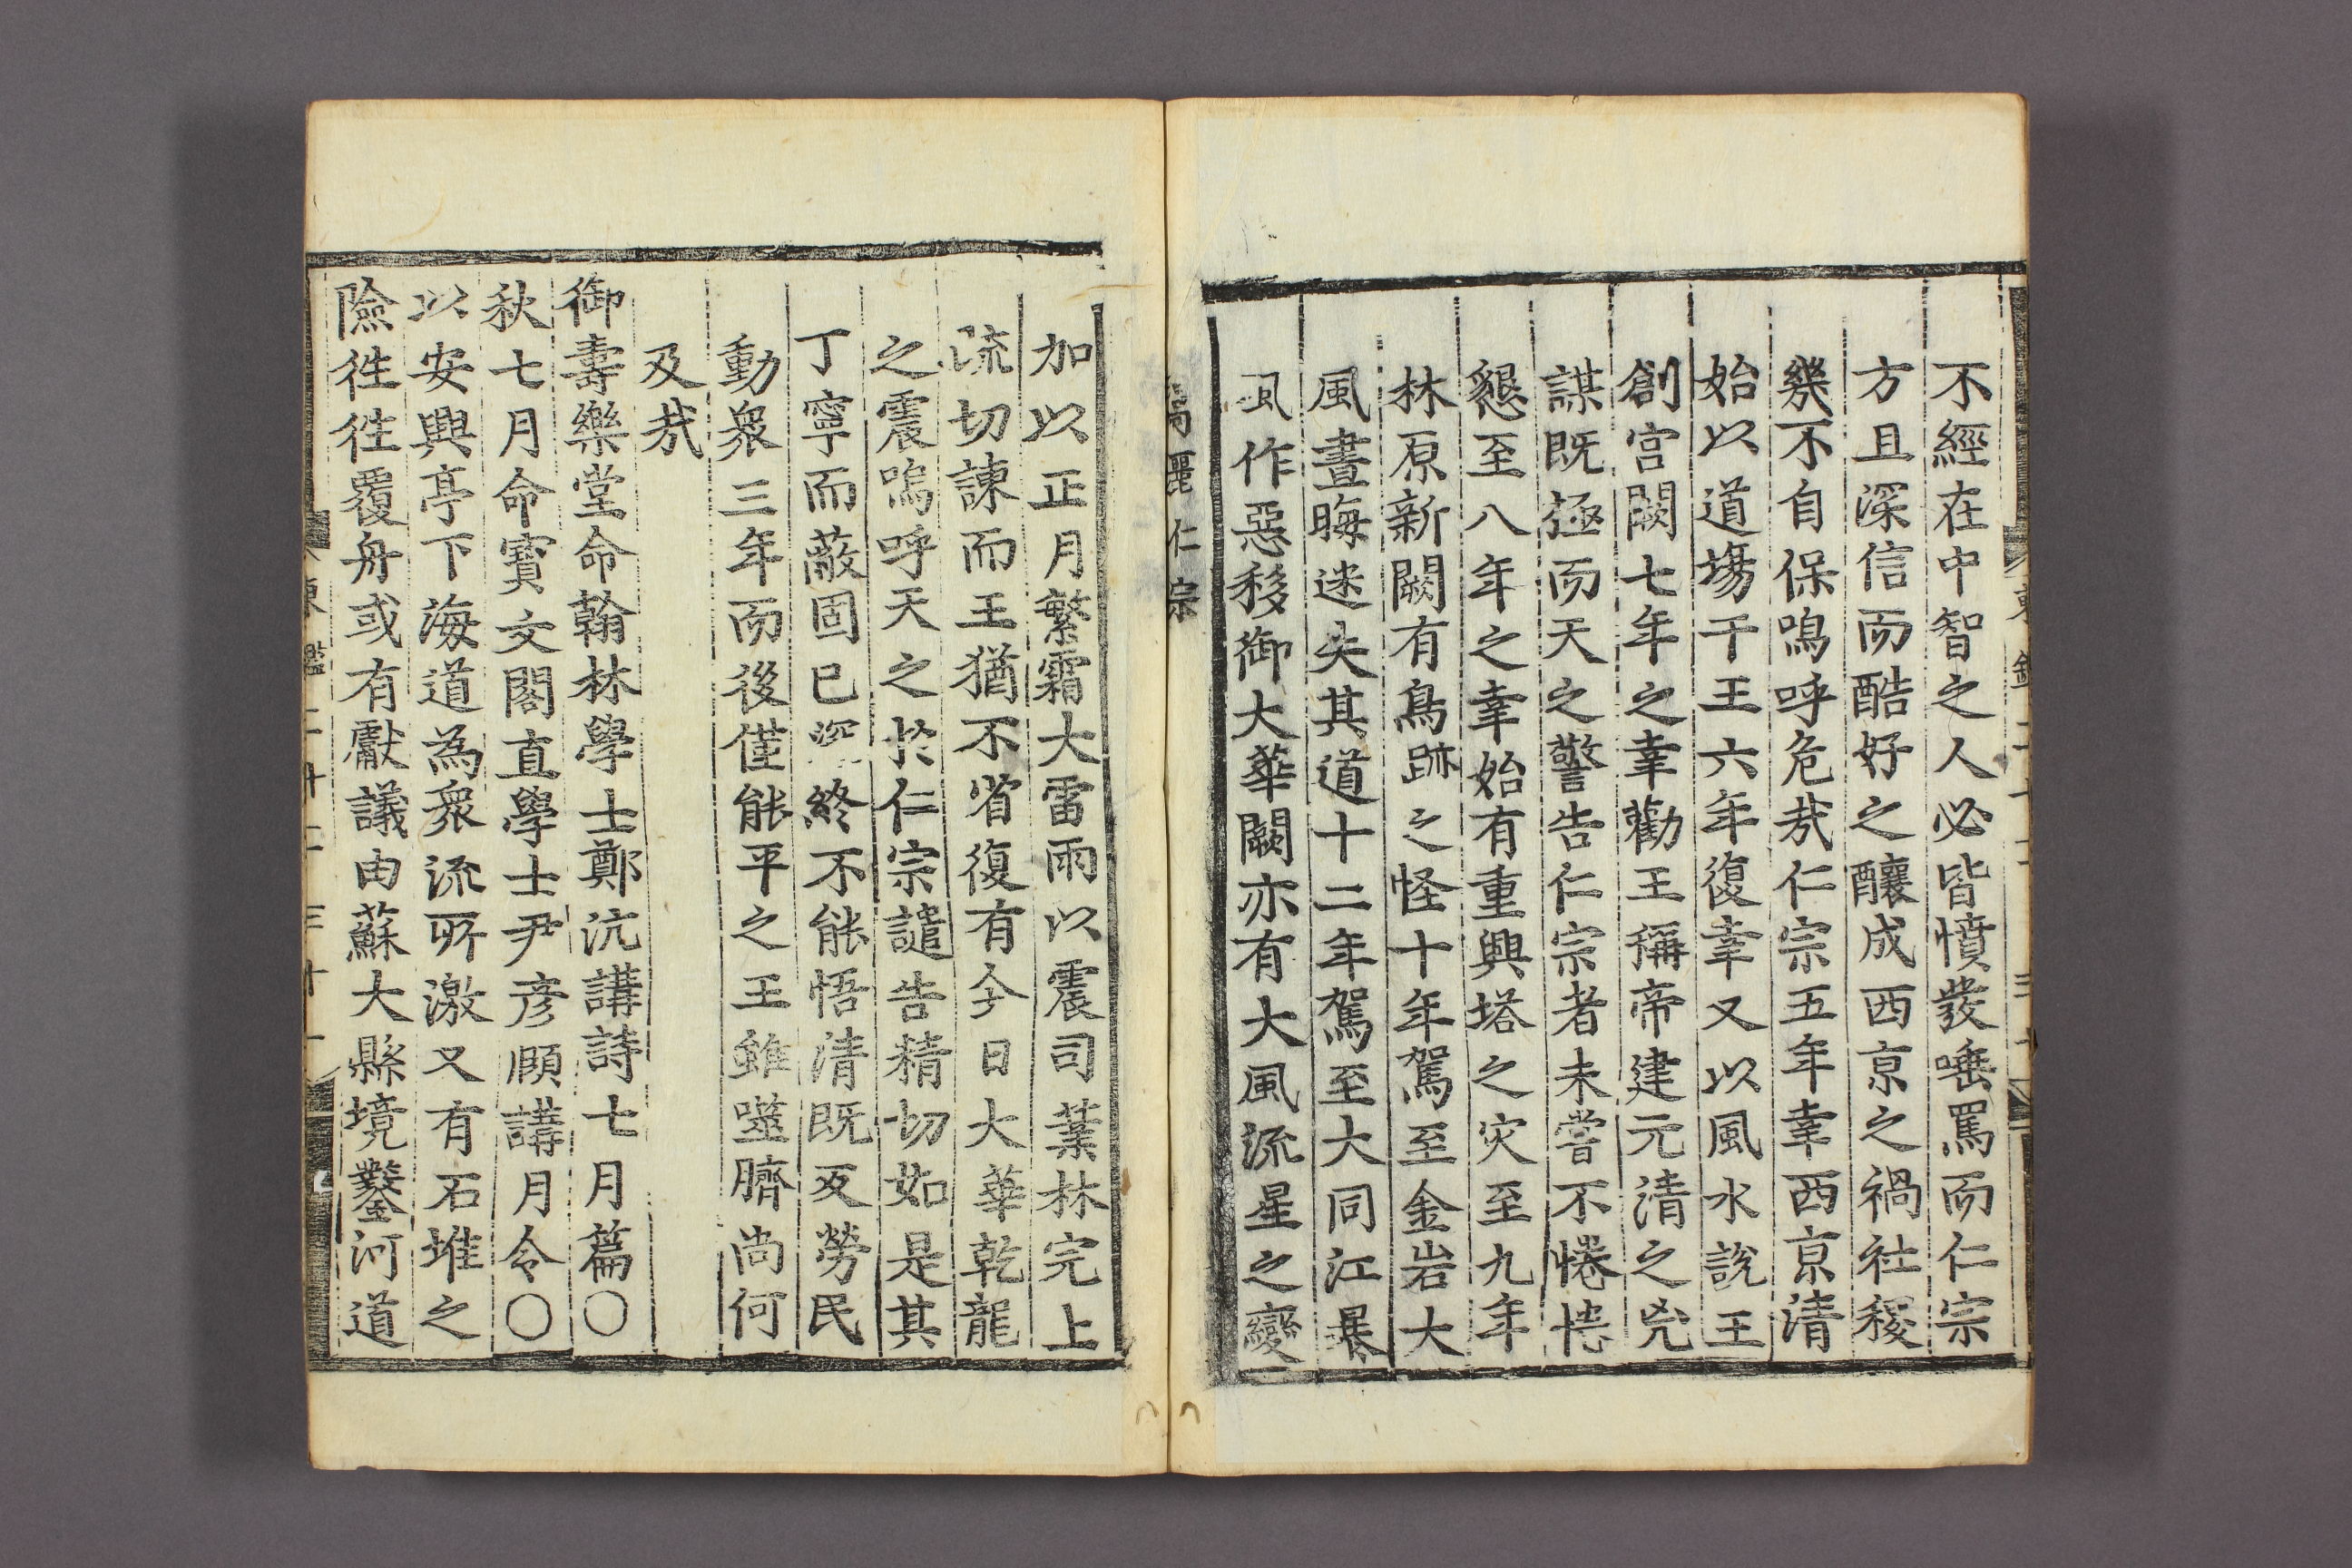 不經在中智之人必皆憤發唾罵而仁宗
方且深信而酷好之釀成西京之禍社稷
幾不自保嗚呼危㢤仁宗五年幸西京清
始以道塲干王六年復幸又以風水說王
創宮闕七年之幸勸王稱帝建元清之兇
謀既極而天之警告仁宗者未嘗不惓惓
懇至八年之幸始有重興塔之灾至九年
林原新闕有鳥跡之怪十年駕至金岩大
風晝晦迷失其道十二年駕至大同江暴
風作惡移御大華闕亦有大風流星之變
高麗仁宗
加以正月繁霜大雷雨以震司葉林完上
疏切諫而王猶不省復有今日大華乾龍
之震嗚呼天之於仁宗譴告精切如是其
丁寧而蔽固已深終不能悟清旣反勞民
動衆三年而後僅能平之王雖噬臍尚何
及㢤
御壽樂堂命翰林學士鄭沆講詩七月篇〇
秋七月命寶文閣直學士尹彦頤講月令〇
以安興亭下海道為衆流所激又有石堆之
險徃徃覆舟或有獻議由蘇大縣境鑿河道